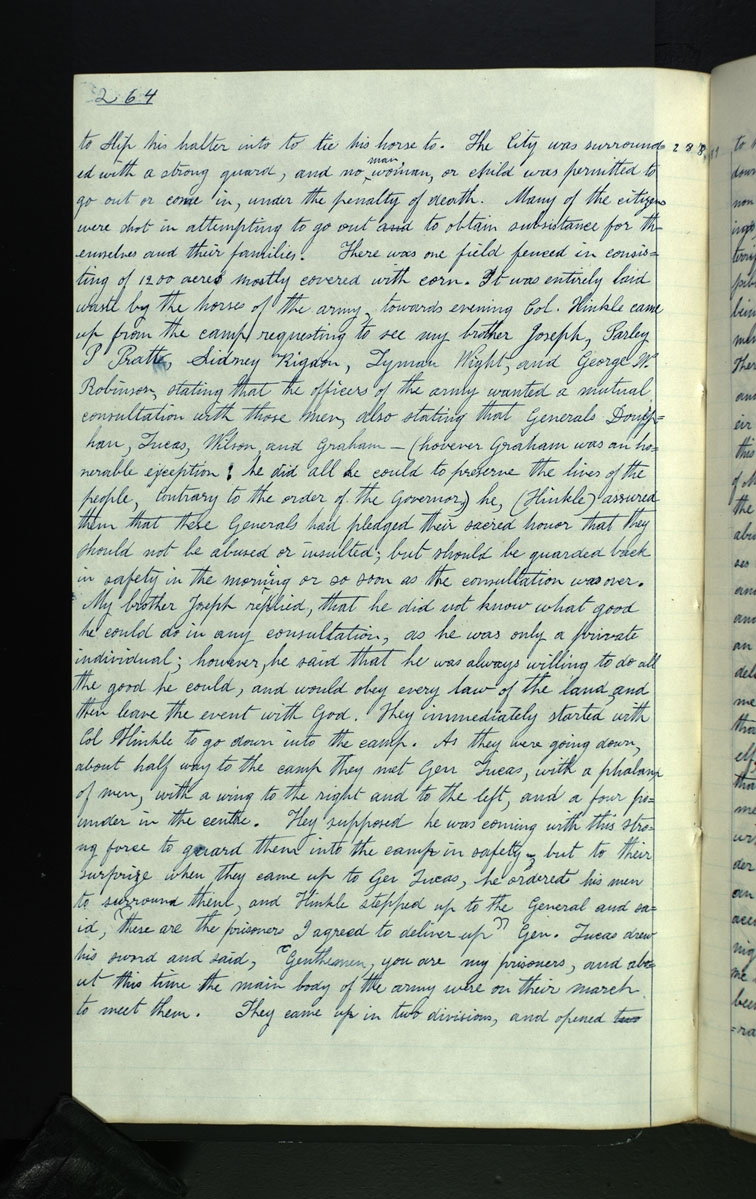 264
to slip his halter into to tie his horse to. The City was surround=
ed with a strong guard, and no man, woman, or child was permitted to
go out or come in, under the penalty of death. Many of the citizens
were shot in attempting to go out and to obtain subsistance for th
emselves and their families. There was one field fenced in consis=
ting of 1200 acres mostly covered with corn. It was entirely laid
waste by the horses of the army, towards evening Col. Hinkle came
up from the camp requesting to see my brother Joseph, Parley
P Pratt, Sidney Rigdon, Lyman Wight, and George W.
Robinson, stating that the officers of the army wanted a mutual
consultation with those men, also stating that Generals Donip=
han, Lucas, Wilson, and Graham — (however Graham was an ho=
norable exception; he did all he could to preserve the lives of the
people, contrary to the order of the Governor,) he, (Hinkle) assured
them that these Generals had pledged their sacred honor that they
should not be abused or insulted; but should be guarded back
in safety in the morning or so soon as the consultation was over.
My brother Joseph replied, that he did not know what good
he could do in any consultation, as he was only a private
individual; however, he said that he was always willing to do all
the good he could, and would obey every law of the land, and
then leave the event with God. They immediately started with
Col Hinkle to go down into the camp. As they were going down,
about half way to the camp they met Gen Lucas, with a phalanx
of men, with a wing to the right and to the left, and a four po=
under in the centre. They supposed he was coming with this stro=
ng force to guard them into the camp in safety, but to their
surprize when they came up to Gen Lucas, he ordered his men
to surround them, and Hinkle stepped up to the General and sa=
id, "These are the prisoners I agreed to deliver up" Gen. Lucas drew
his sword and said, "Gentlemen, you are my prisoners, and abo=
ut this time the main body of the army were on their march
to meet them. They came up in two divisions, and opened two